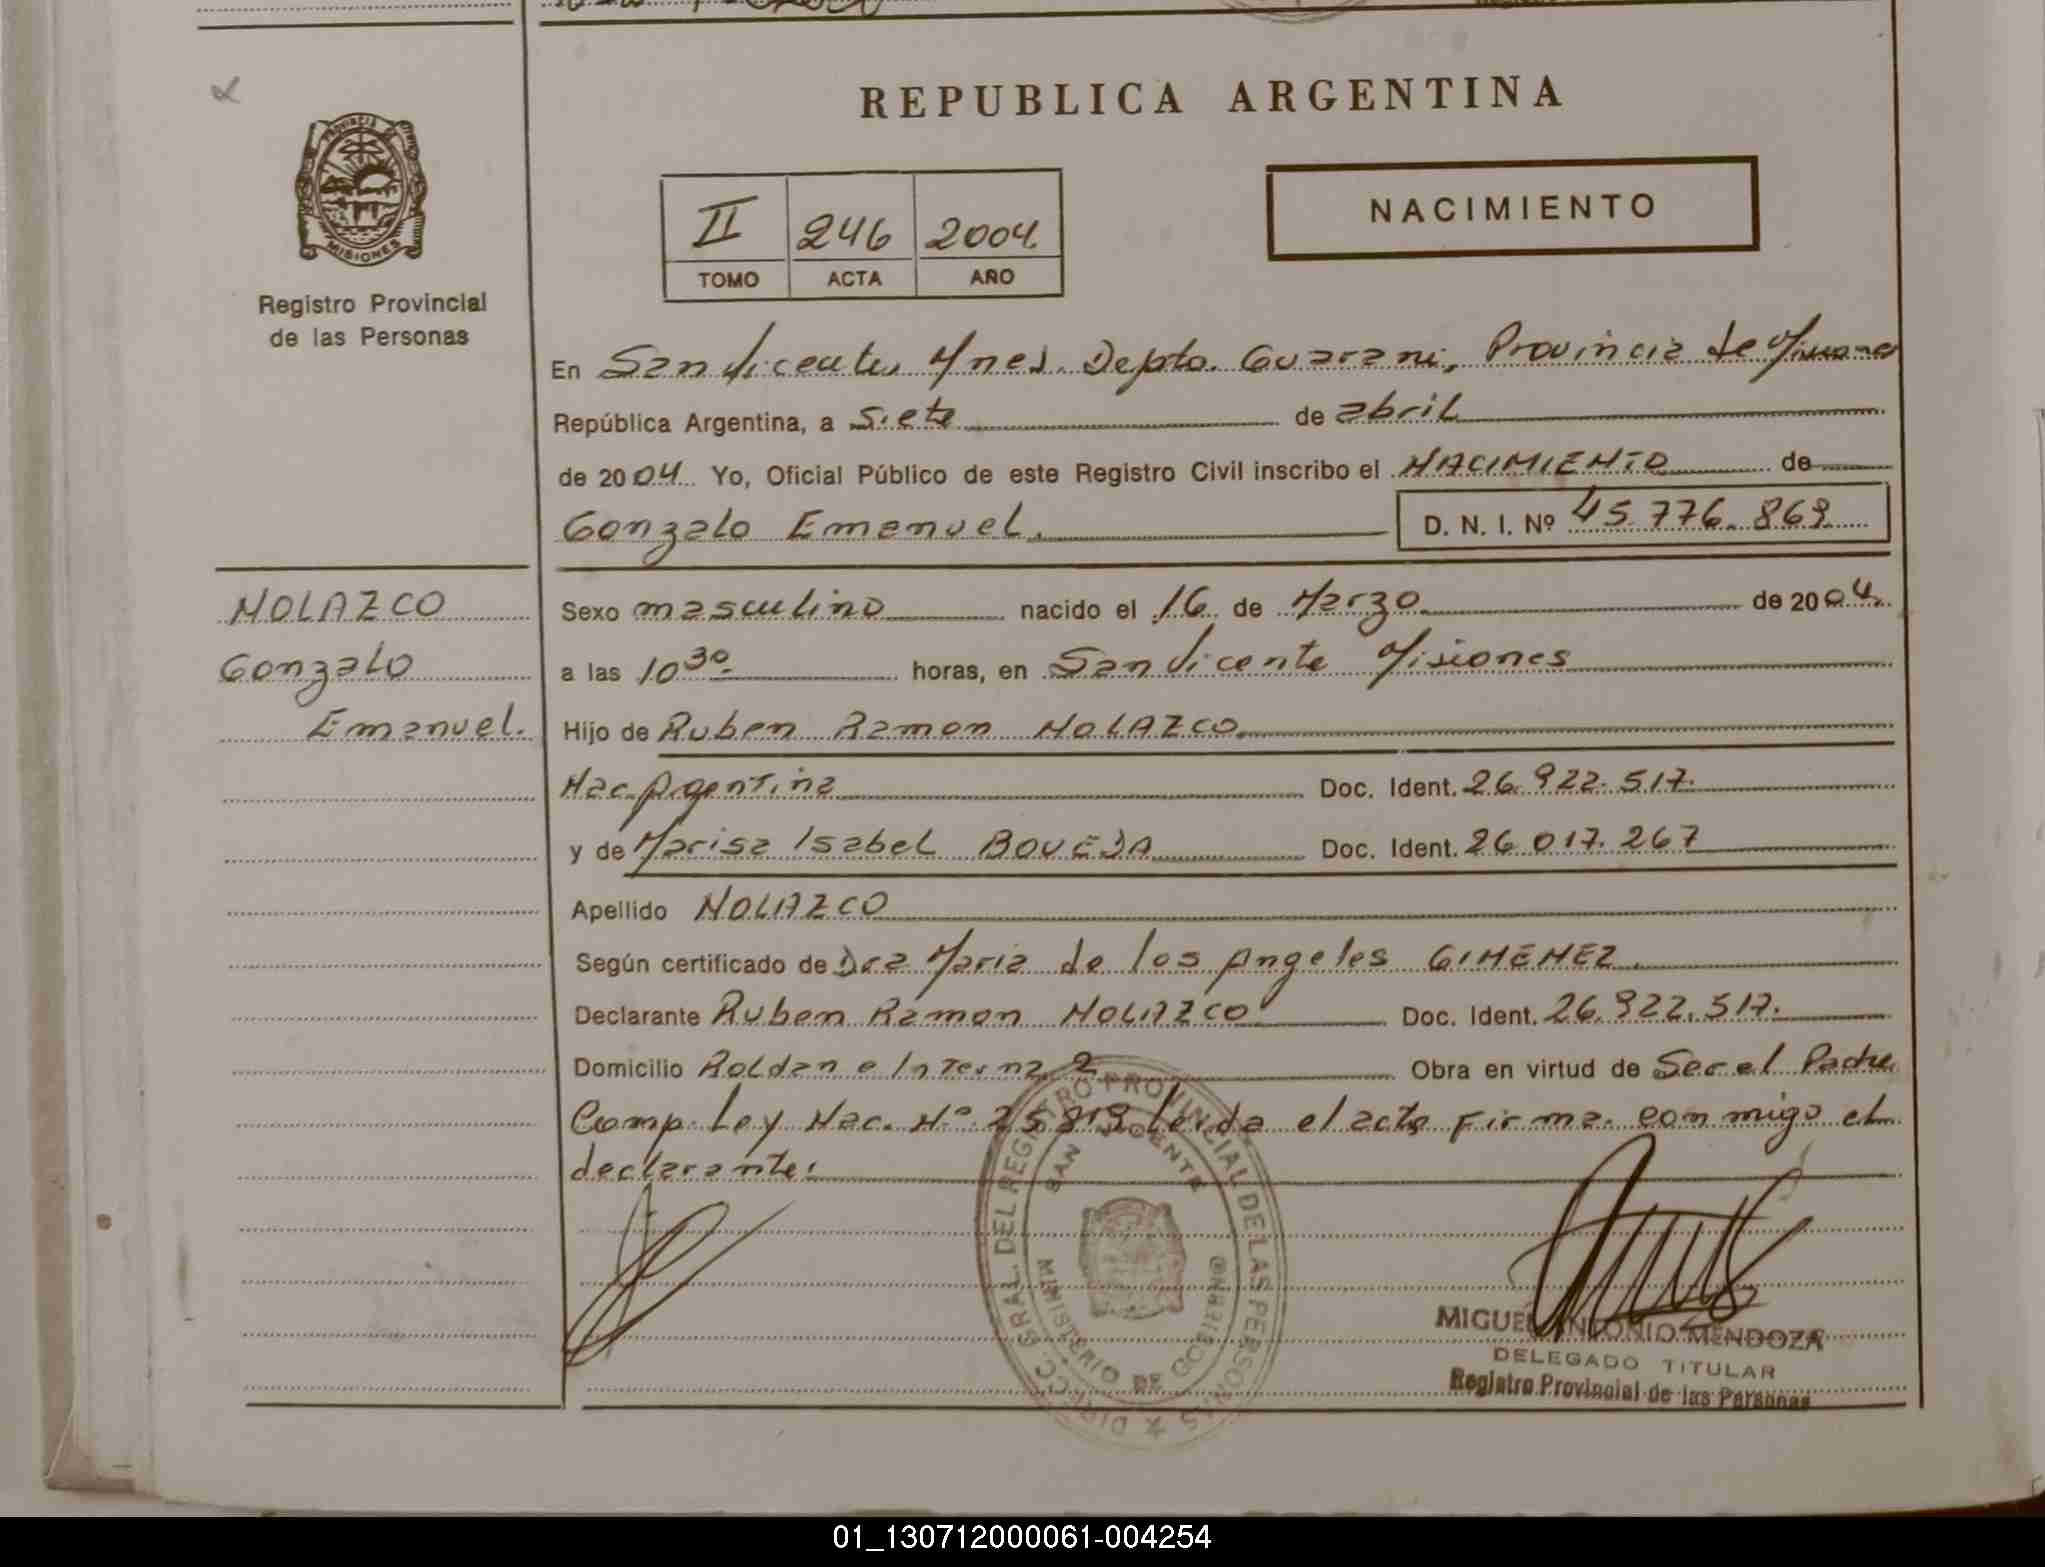 REPUBLICA ARGENTINA
PROVINCIA DE
MISIONES
Registro Provincial
de las Personas
II 246 2004
TOMO ACTA AÑO
NACIMIENTO
En San Vicente, Mnes. Depto. Guarani, Provincia de Misiones
República Argentina, a Siete de abril
de 2004 Yo, Oficial Público de este Registro Civil inscribo el NACIMIENTO de
Gonzalo Emanuel. D. N. I. Nº 45.776.869
NOLAZCO
Gonzalo
Emanuel.
Sexo masculino nacido el 16 de Marzo de 2004.
a las 10 30 horas, en San Vicente Misiones
Hijo de Ruben Ramon NOLAZCO
Nac. Argentina Doc. Ident. 26.922.517.
y de Marisa Isabel BOVEDA Doc. Ident. 26.017.267
Apellido NOLAZCO
Según certificado de Dra Maria de los Angeles GIMENEZ
Declarante Ruben Ramon NOLAZCO Doc. Ident. 26.922.517.
Domicilio Roldan e Interna 2 Obra en virtud de Ser el Padre
Comp. Ley Nac. Nº 25.819 leida el acta Firma conmigo el
declarante:
DIRECC. GRAL. DEL REGISTRO PROVINCIAL DE LAS PERSONAS
SAN VICENTE
MINISTERIO DE GOBIERNO
MIGUEL ANTONIO MENDOZA
DELEGADO TITULAR
Registro Provincial de las Personas
01_130712000061-004254